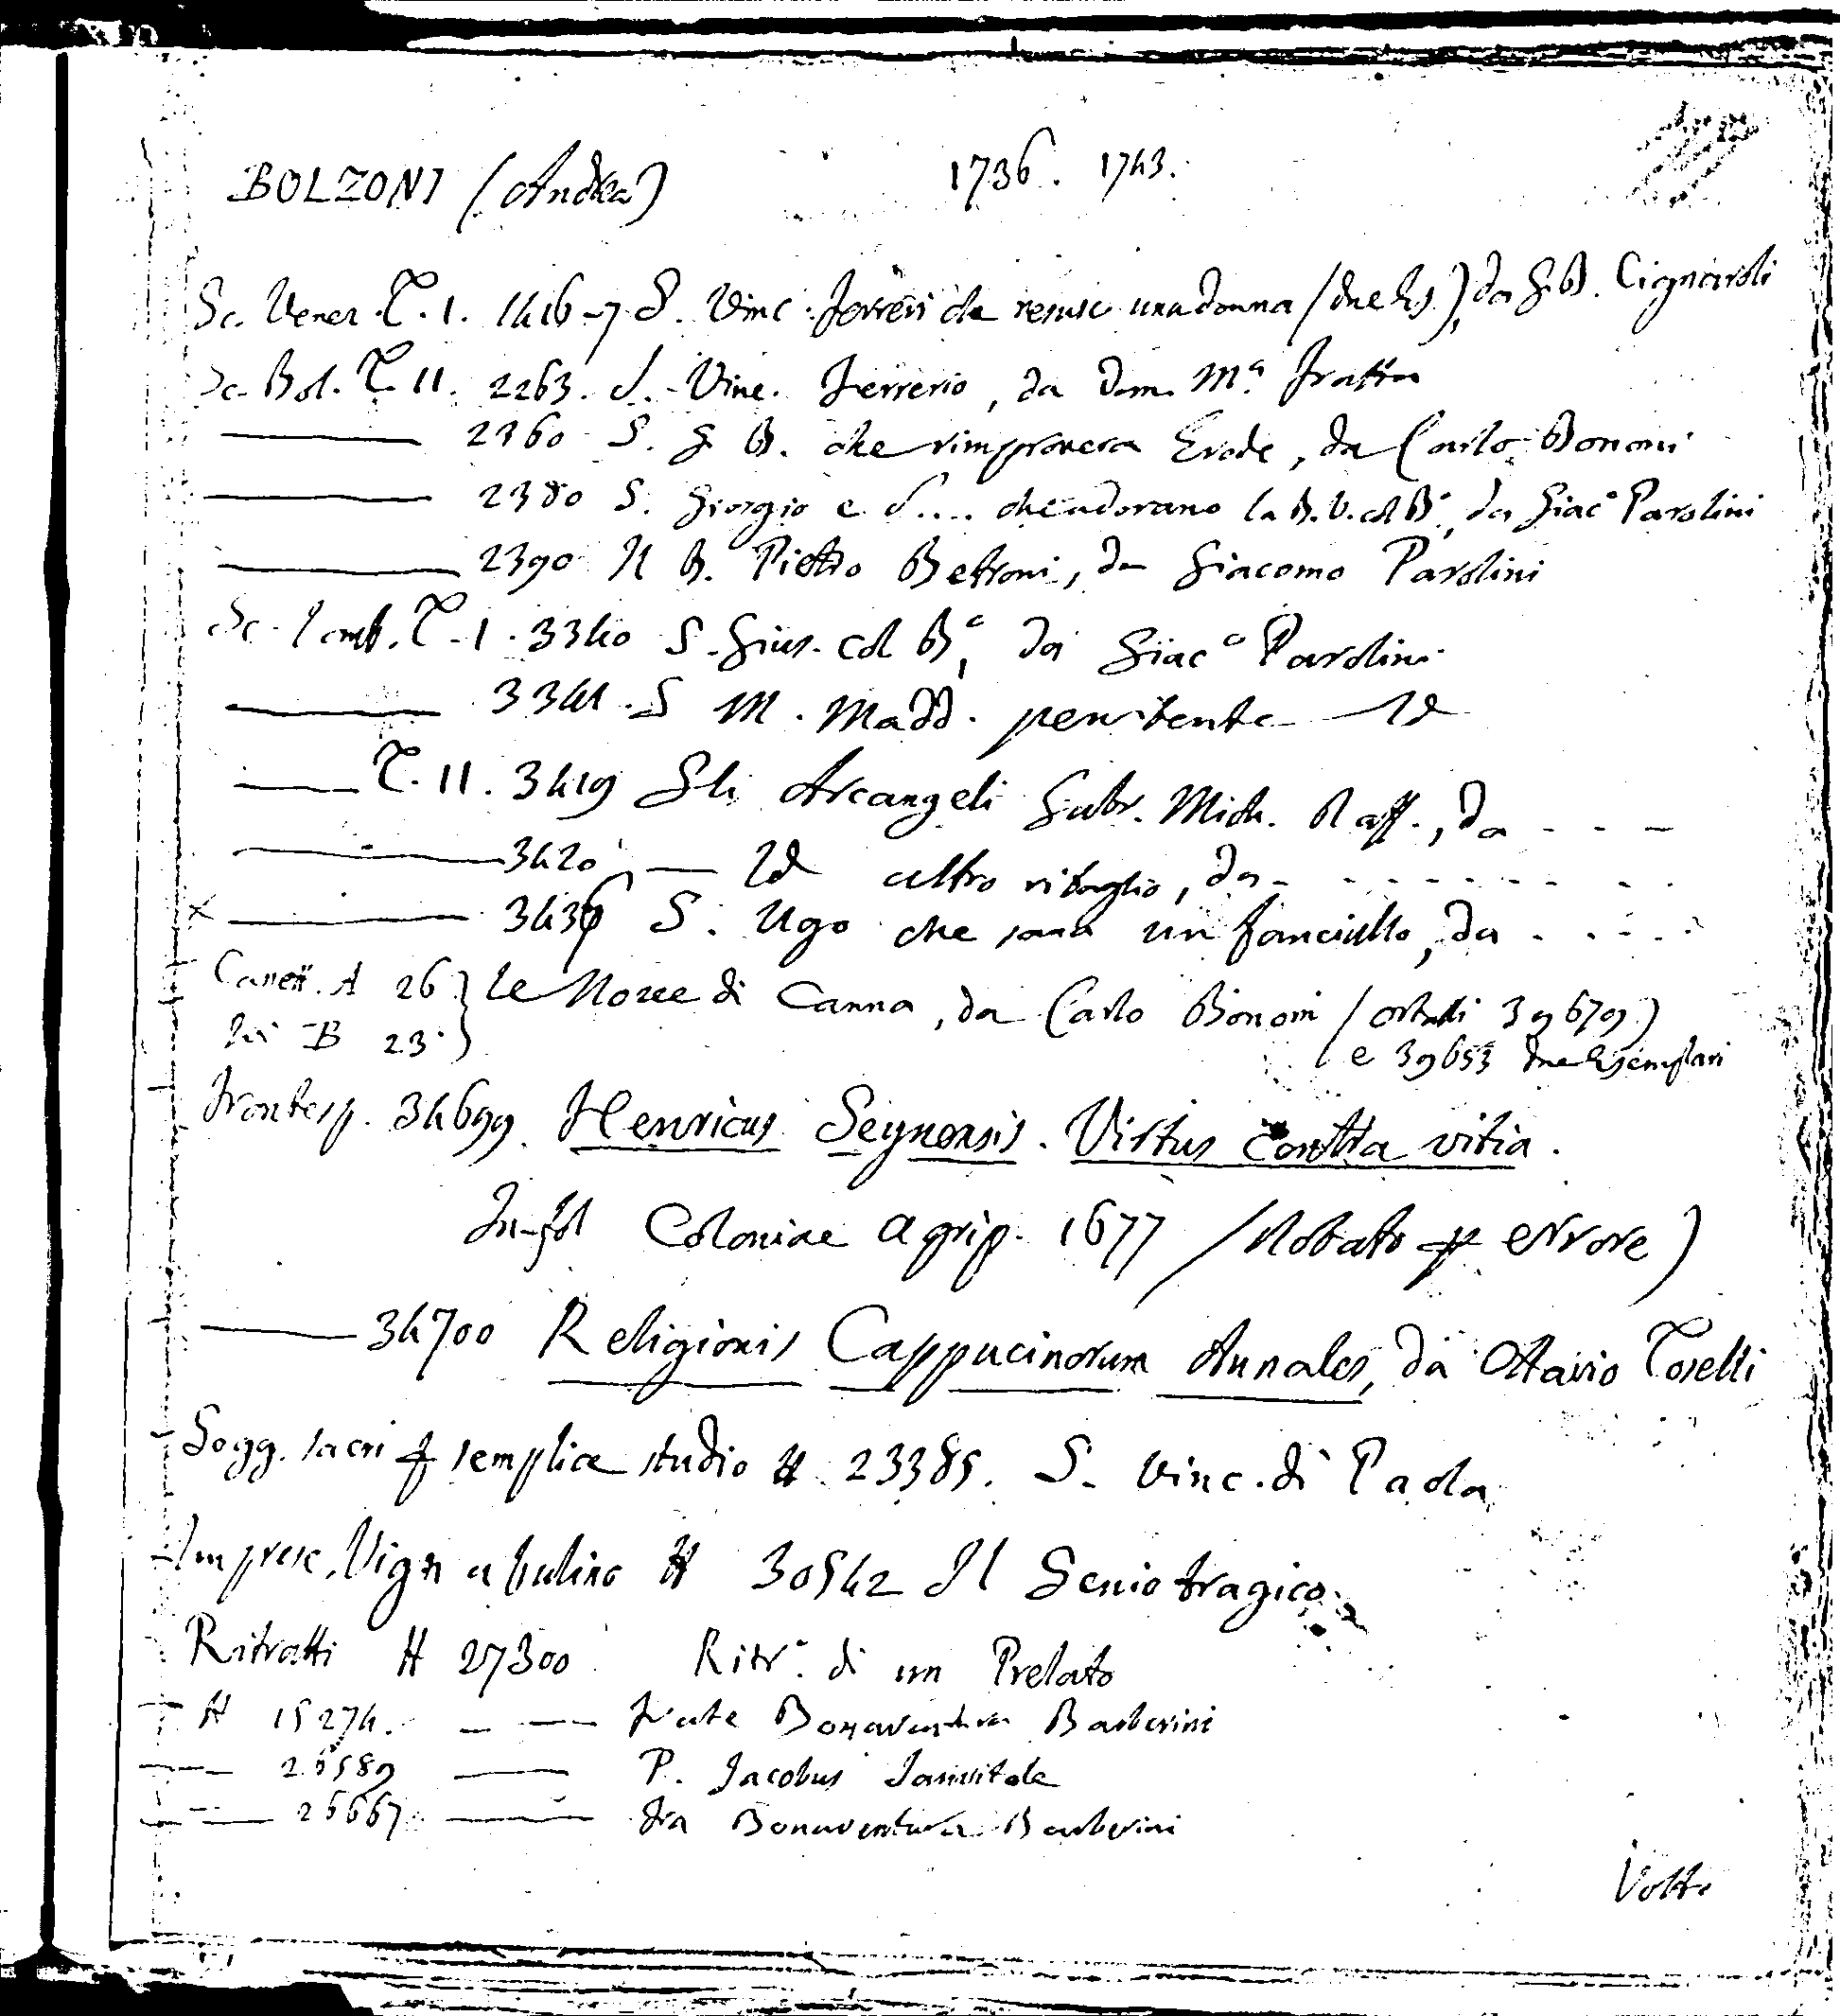 BOLZONI (Andrea) 1736. 1743.
Sc. Venez. T. 1. 1416-7 S. Vinc. Ferreri che resusc una donna (due Es.), da G. B. Cignaroli
Sc. Bol. T. 11. 2263. S. Vinc. Ferrerio, da Dom. Mª. Fratta
—— 2360 S. G. B. che rimprovera Erode, da Carlo Bononi
—— 2380 S. Giorgio e S.... che adorano la B. V. col Bº., da Giacº Parolini
—— 2390 Il B. Pietro Betroni, da Giacomo Parolini
Sc. Lomb. T. 1. 3340 S. Gius. col Bº, da Giacº Parolini
—— 3341. S M. Madd. penitente Id
—— T. 11. 3419 Gli Arcangeli Gabr. Mich. Raff., da - - -
—— 3420 — Id altro ritaglio, da - - - - - - - -
x —— 3436 S. Ugo che sana un fanciullo, da . . . . .
Canett. A 26 } Le Nozze di Canna, da Carlo Bononi (ortali 39679)
Ivi B 23 } ( e 39653 due Esemplari
Frontesp. 34699. Henricus Seynensis. Virtus contra vitia.
In-fol Coloniae Agrip. 1677 (Notato p errore)
—— 34700 Religionis Cappucinorum Annales, da Ottavio Toselli
Sogg. sacri p semplice studio H 23385. S. Vinc. di Paola
Imprese, Vign a bulino H 30542 Il Genio tragico
Ritratti H 27300 Ritr.º di un Prelato
— H 15274. — — Frate Bonaventura Barberini
—— 26589 —— P. Jacobus
—— 26667 —— Fra Bonaventura Barberini
Volti